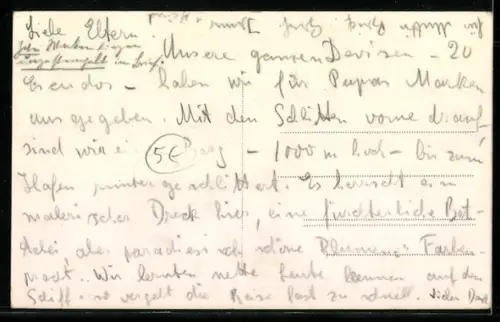 Liebe Eltern.
Unsere ganzen Devisen - 20
Escudos - haben wir für Papas Marken
ausgegeben. Mit den Schlitten vorne drauf
sind wir ein Berg - 1000 m hoch - bis zum
Hafen runter geschlittert. Es herrscht ein
malerischer Dreck hier, eine fürchterliche Bet-
telei, aber paradiesisch schöne Blumen: Farben-
pracht. Wir lernten nette Leute kennen auf dem
Schiff. so vergeht die Reise fast zu schnell. Vielen Dank
5€